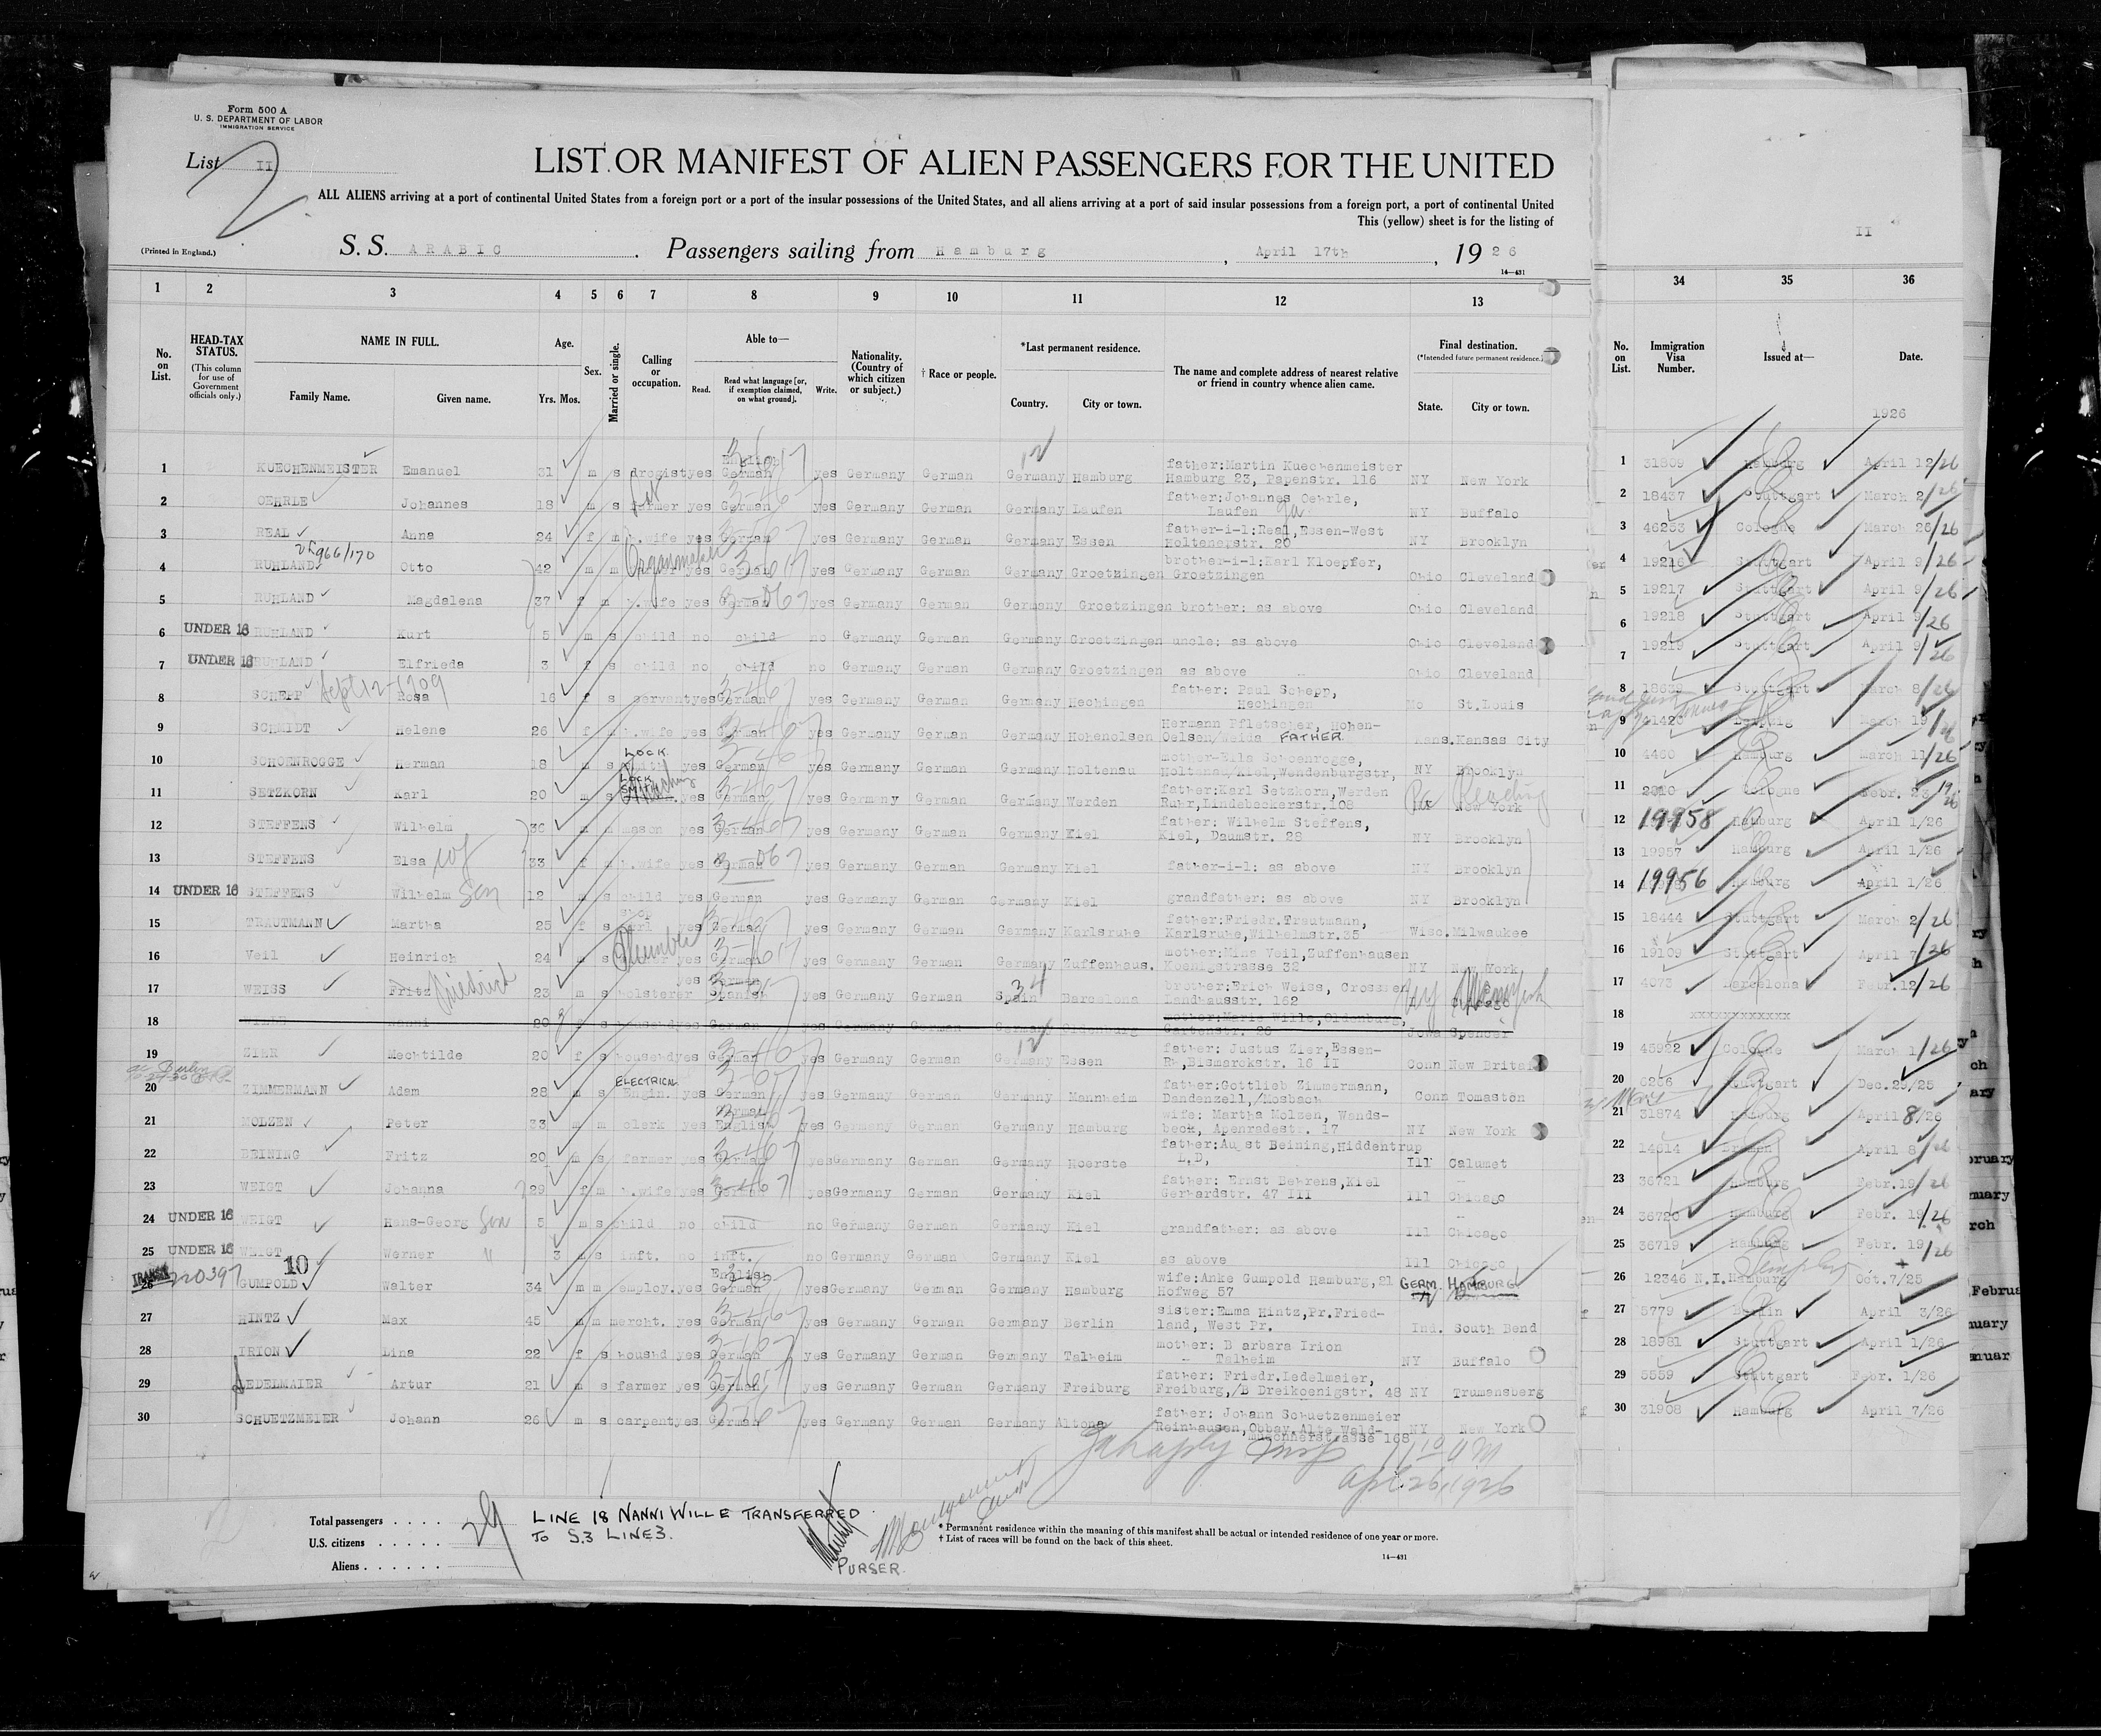 Form 500 A
U. S. DEPARTMENT OF LABOR
IMMIGRATION SERVICE
List II
2
LIST OR MANIFEST OF ALIEN PASSENGERS FOR THE UNITED
ALL ALIENS arriving at a port of continental United States from a foreign port or a port of the insular possessions of the United States, and all aliens arriving at a port of said insular possessions from a foreign port, a port of continental United
This (yellow) sheet is for the listing of
(Printed in England.) S. S. ARABIC . Passengers sailing from Hamburg , April 17th , 19 26
14—431
II
1 2 3 4 5 6 7 8 9 10 11 12 13 34 35 36
No. on List.
HEAD-TAX STATUS.
(This column for use of Government officials only.)
NAME IN FULL.
Family Name. Given name.
Age.
Yrs. Mos.
Sex.
Married or single.
Calling or occupation.
Able to—
Read. Read what language [or, if exemption claimed, on what ground]. Write.
Nationality. (Country of which citizen or subject.)
† Race or people.
*Last permanent residence.
Country. City or town.
The name and complete address of nearest relative or friend in country whence alien came.
Final destination.
(*Intended future permanent residence.)
State. City or town.
No. on List. Immigration Visa Number. Issued at— Date.
1926
1 KUECHENMEISTER Emanuel 31 m s drogist yes English German yes Germany German Germany Hamburg father:Martin Kuechenmeister Hamburg 23, Papenstr. 116 NY New York 1 31809 Hamburg April 12/26
2 OEHRLE Johannes 18 m s farmer yes German yes Germany German Germany Laufen father:Johannes Oehrle, Laufen NY Buffalo 2 18437 Stuttgart March 2/26
3 REAL Anna 24 f m h.wife yes German yes Germany German Germany Essen father-i-l:Real,Essen-West Holtenerstr. 20 NY Brooklyn 3 46253 Cologne March 26/26
966/170
4 RUHLAND Otto 42 m m Organmaker yes German yes Germany German Germany Groetzingen brother-i-l:Karl Kloepfer, Groetzingen Ohio Cleveland 4 19216 Stuttgart April 9/26
5 RUHLAND Magdalena 37 f m h.wife yes German yes Germany German Germany Groetzingen brother: as above Ohio Cleveland 5 19217 Stuttgart April 9/26
6 UNDER 16 RUHLAND Kurt 5 m s child no child no Germany German Germany Groetzingen uncle: as above Ohio Cleveland 6 19218 Stuttgart April 9/26
7 UNDER 16 RUHLAND Elfrieda 3 f s child no child no Germany German Germany Groetzingen as above Ohio Cleveland 7 19219 Stuttgart April 9/26
8 SCHEPP Sept 12-1909 Rosa 16 f s servant yes German yes Germany German Germany Hechingen father: Paul Schepp, Hechingen Mo St.Louis 8 Stuttgart March 8/26
9 SCHMIDT Helene 26 f m h.wife yes German yes Germany German Germany Hohenolsen Hermann Pfletscher, Hohen-Oelsen/Weida FATHER Kans. Kansas City 9 March 19/26
10 SCHOENROGGE Herman 18 m s LOCK smith yes German yes Germany German Germany Holtenau mother-Ella Schoenrogge, Holtenau/Kiel,Wendenburgstr, NY Brooklyn 10 4460 Hamburg March 11/26
11 SETZKORN Karl 20 m s LOCK SMITH yes German yes Germany German Germany Werden father:Karl Setzkorn,Werden Ruhr,Lindebeckerstr.108 Pa Reading New York 11 Cologne Febr. 23
12 STEFFENS Wilhelm 36 m m mason yes German yes Germany German Germany Kiel father: Wilhelm Steffens, Kiel, Daumstr. 28 NY Brooklyn 12 19958 Hamburg April 1/26
13 STEFFENS Elsa wf 33 f m h.wife yes German yes Germany German Germany Kiel father-i-l: as above NY Brooklyn 13 19957 Hamburg April 1/26
14 UNDER 16 STEFFENS Wilhelm Son 12 m s child yes German yes Germany German Germany Kiel grandfather: as above NY Brooklyn 14 19956 Hamburg April 1/26
15 TRAUTMANN Martha 25 f s shop girl yes German yes Germany German Germany Karlsruhe father:Friedr.Trautmann, Karlsruhe,Wilhelmstr.35 Wisc. Milwaukee 15 18444 Stuttgart March 2/26
16 Veil Heinrich 24 m s Plumber yes German yes Germany German Germany Zuffenhaus. mother:Mina Veil,Zuffenhausen Koenigstrasse 32 NY New York 16 19109 Stuttgart April 7/26
17 WEISS Fritz Friedrich 23 m s bolsterer yes German Spanish yes Germany German Spain Barcelona brother:Erich Weiss, Crossen Landhausstr. 162 NY 17 4073 Barcelona Febr.12/26
18 WILLE Nanni 20 f s househd yes German yes Germany German Germany Oldenburg mother:Marie Wille,Oldenburg, Gartenstr. 26 Iowa Spencer 18 xxxxxxxxxxxxx
19 ZIER Mechtilde 20 f s househd yes German yes Germany German Germany Essen father: Justus Zier,Essen-Rh,Bismarckstr. 16 II Conn New Britain 19 45922 Cologne March 1/26
20 ZIMMERMANN Adam 28 m s ELECTRICAL Engin. yes German yes Germany German Germany Mannheim father:Gottlieb Zimmermann, Dandenzell,/Mosbach Conn Tomaston 20 6266 Stuttgart Dec.25/25
21 MOLZEN Peter 33 m m clerk yes German English yes Germany German Germany Hamburg wife: Martha Molzen, Wandsbeck, Apenradestr. 17 NY New York 21 31874 Hamburg April 8/26
22 BEINING Fritz 20 m s farmer yes German yes Germany German Germany Hoerste father:August Beining,Hiddentrup L.D, Ill Calumet 22 14614 Bremen April 8/26
23 WEIGT Johanna 29 f m h.wife yes German yes Germany German Germany Kiel father: Ernst Behrens,Kiel Gerhardstr. 47 III Ill Chicago 23 36721 Hamburg Febr.19/26
24 UNDER 16 WEIGT Hans-Georg Son 5 m s child no child no Germany German Germany Kiel grandfather: as above Ill Chicago 24 36720 Hamburg Febr. 19/26
25 UNDER 16 WEIGT Werner " 3 m s inft. no inft. no Germany German Germany Kiel as above Ill Chicago 25 36719 Hamburg Febr. 19/26
10
26 TRANSIT GUMPOLD Walter 34 m m employ. yes English German yes Germany German Germany Hamburg wife:Anke Gumpold Hamburg,21 Hofweg 57 GERM. HAMBURG 26 12346 N.I. Hamburg Oct.7/25
27 HINTZ Max 45 m m mercht. yes German yes Germany German Germany Berlin sister:Emma Hintz,Pr.Friedland, West Pr. Ind. South Bend 27 5779 Berlin April 3/26
28 IRION Lina 22 f s househd yes German yes Germany German Germany Talheim mother: Barbara Irion Talheim NY Buffalo 28 18981 Stuttgart April 1/26
29 LEDELMAIER Artur 21 m s farmer yes German yes Germany German Germany Freiburg father: Friedr.Ledelmaier, Freiburg,/B Dreikoenigstr. 48 NY Trumansberg 29 5559 Stuttgart Febr. 1/26
30 SCHUETZMEIER Johann 26 m s carpent yes German yes Germany German Germany Altona father: Johann Schuetzenmeier Reinhausen,Obbay.Alte Waldmuenchnerstrasse 168 NY New York 30 31908 Hamburg April 7/26
11 10 AM
Apr. 26, 1926
Total passengers . . . .
U.S. citizens . . . . . .
Aliens . . . . . .
29
LINE 18 NANNI WILLE TRANSFERRED
TO S.3 LINE 3.
PURSER.
* Permanent residence within the meaning of this manifest shall be actual or intended residence of one year or more.
† List of races will be found on the back of this sheet.
14—431